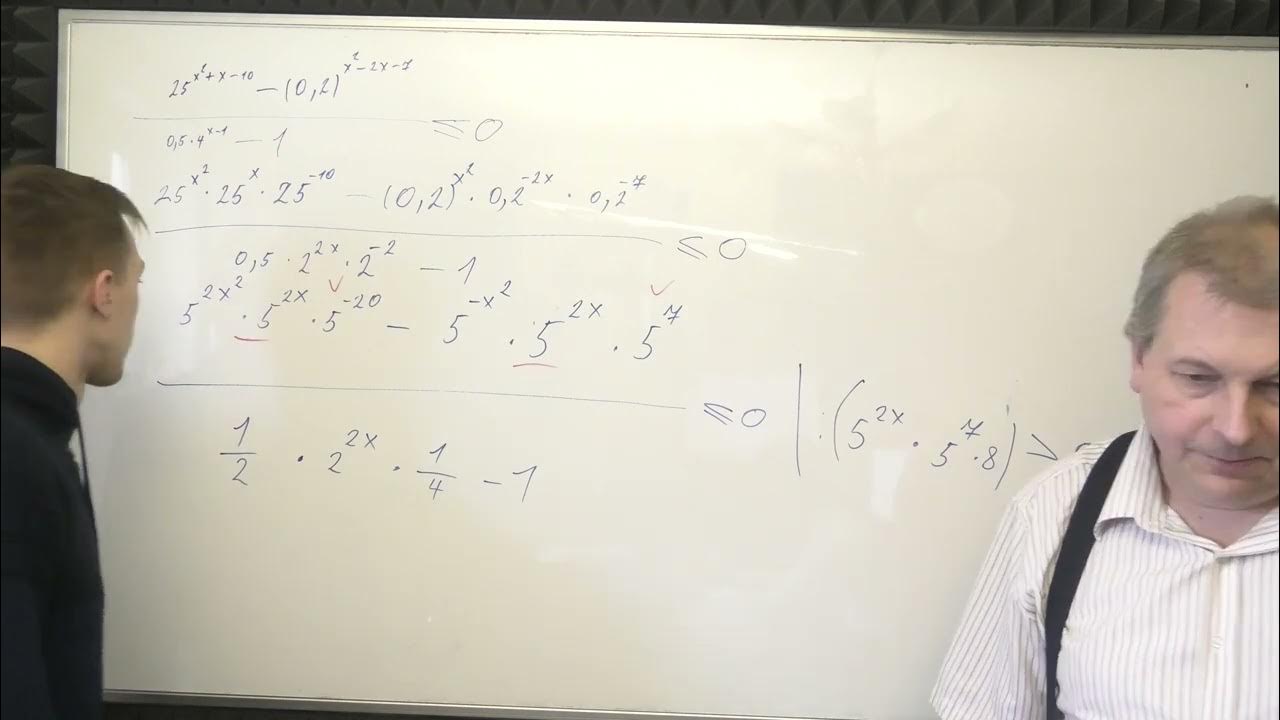 25^{x²+x-10} - (0,2)^{x²-2x-7}
―――――――――― ≤ 0
0,5·4^{x-1} - 1
25^{x²}·25^{x}·25^{-10} - (0,2)^{x²}·0,2^{-2x}·0,2^{-7}
―――――――――― ≤ 0
0,5·2^{2x}·2^{-2} - 1
5^{2x²}·5^{2x}·5^{-20} - 5^{-x²}·5^{2x}·5^{7}
―――――――――― ≤ 0 | :(5^{2x}·5^{7}·8) >
1/2·2^{2x}·1/4 - 1